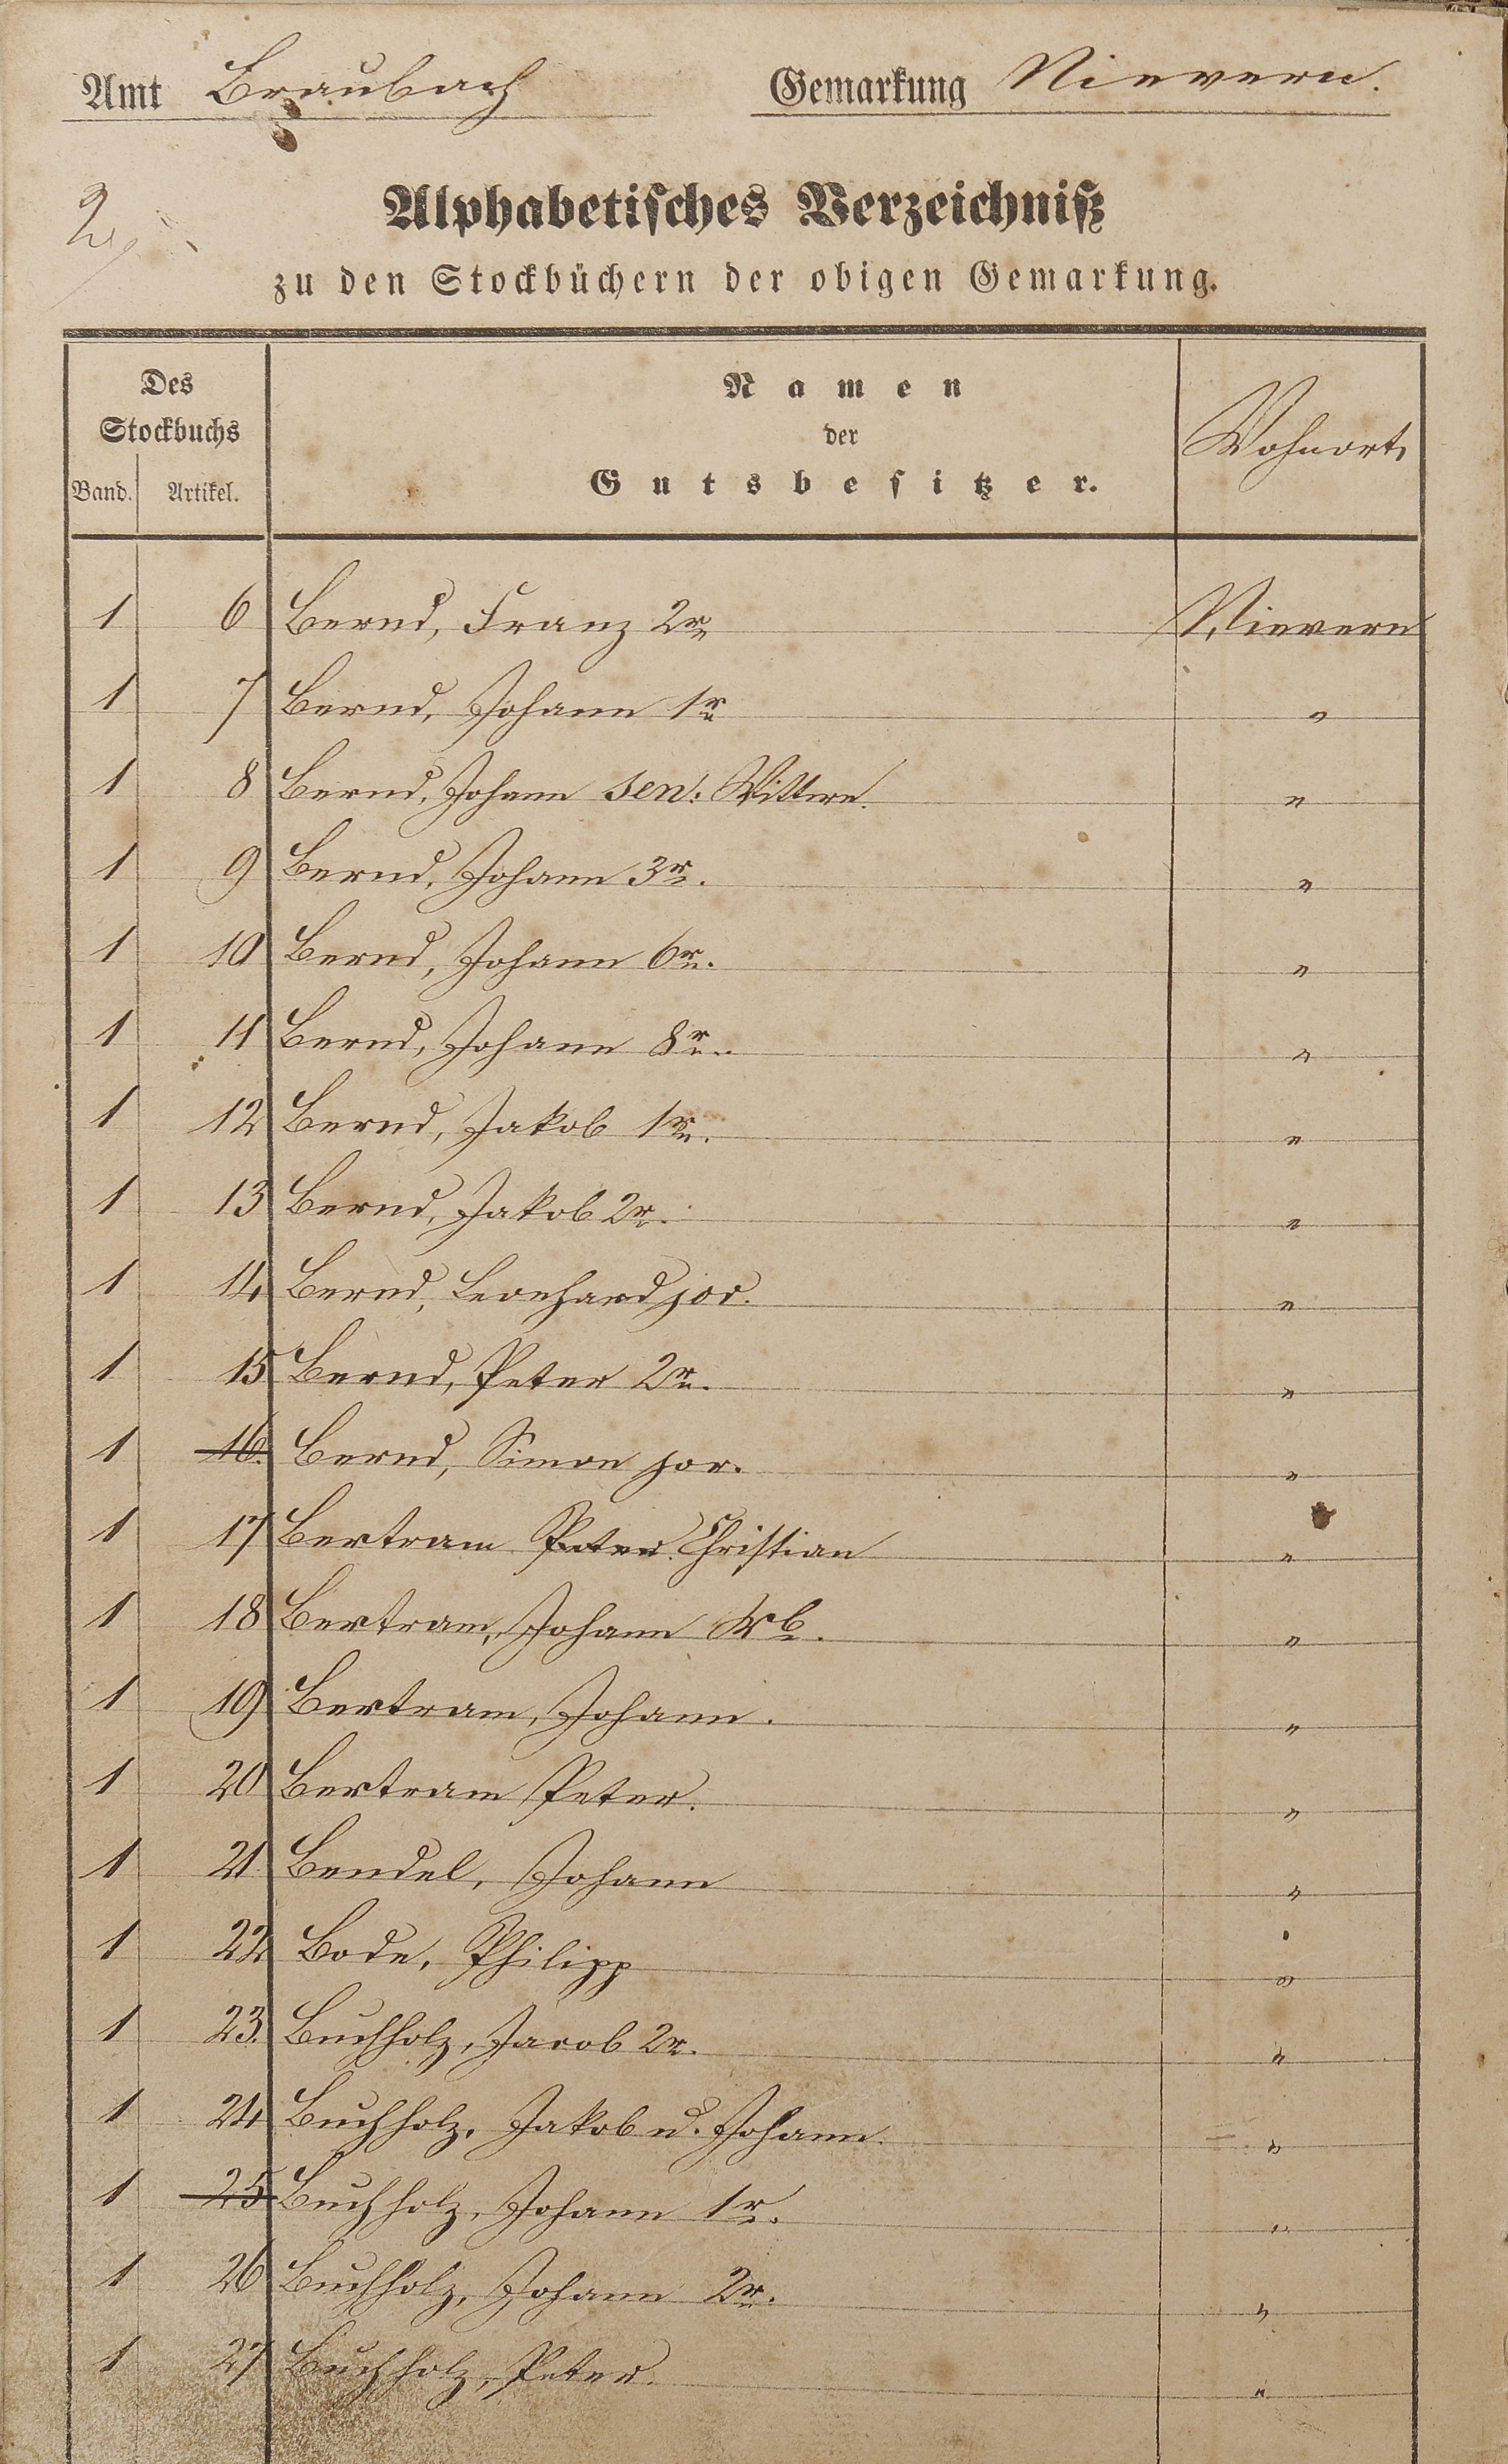 Amt Braubach Gemarkung Nievern.
Alphabetisches Verzeichniß
zu den Stockbüchern der obigen Gemarkung.
Des
Stockbuchs
Band. Artikel.
Namen
der
Gutsbesitzer.
Wohnort
1 6 Bernd, Franz 2r Nievern
1 7 Bernd, Johann 1r "
1 8 Bernd, Johann sen: Wittwe. "
1 9 Bernd, Johann 3r. "
1 10 Bernd, Johann 6r. "
1 11 Bernd, Johann 8r. "
1 12 Bernd, Jakob 1r. "
1 13 Bernd, Jakob 2r. "
1 14 Bernd, Leonhard jor. "
1 15 Bernd, Peter 2r. "
1 16. Bernd, Simon jor. "
1 17 Bertram Peter Christian "
1 18 Bertram, Johann Wb. "
1 19 Bertram, Johann. "
1 20 Bertram Peter. "
1 21 Bendel, Johann "
1 22 Bode, Philipp "
1 23. Buchholz, Jacob 2r. "
1 24 Buchholz, Jakob u. Johann. "
1 25 Buchholz, Johann 1r. "
1 26 Buchholz, Johann 2r. "
1 27 Buchholz, Peter. "